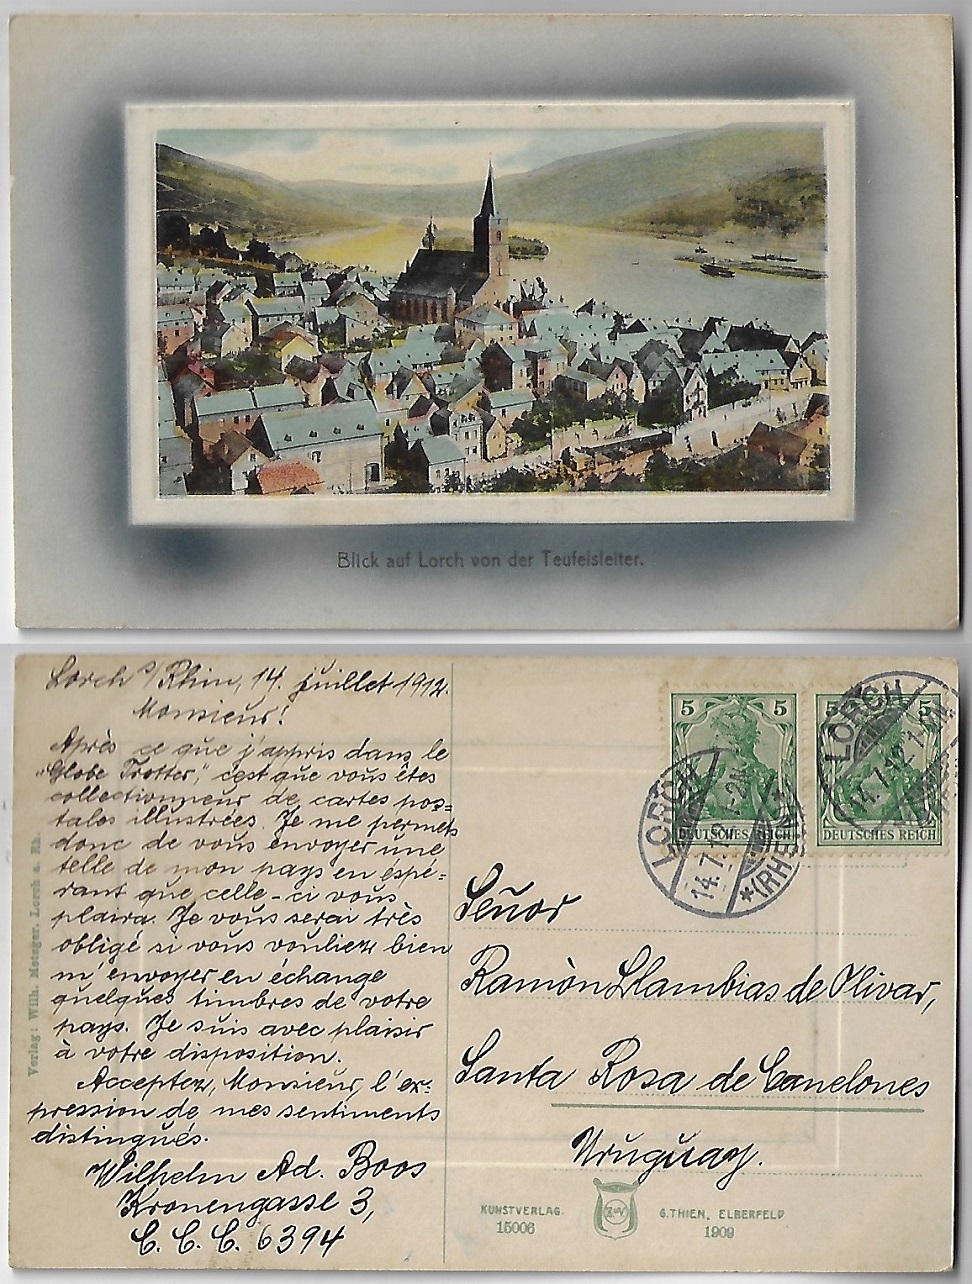 Blick auf Lorch von der Teufelsleiter.
Lorch s/Rhin, 14. juillet 1912.
Monsieur!
Après ce que j'appris dans le
"Globe Trotter", c'est que vous êtes
collectionneur de cartes pos=
tales illustrées. Je me permets
donc de vous envoyer une
telle de mon pays en éspé-
rant que celle-ci vous
plaira. Je vous serai très
obligé si vous vouliez bien
m'envoyer en échange
quelques timbres de votre
pays. Je suis avec plaisir
à votre disposition.
Acceptez, Monsieur, l'ex=
pression de mes sentiments
distingués.
Wilhelm Ad. Boos
Kronengasse 3,
C. C. C. 6394
Verlag: Wilh. Metzger. Lorch a. Rh.
5 5
DEUTSCHES REICH
5 5
DEUTSCHES REICH
LORCH
14.7.12
*(RHEIN
LORCH
14.7.12
Señor
Ramòn Llambias de Olivar,
Santa Rosa de Canelones
Uruguay.
KUNSTVERLAG.
15006
G. THIEN, ELBERFELD
1909